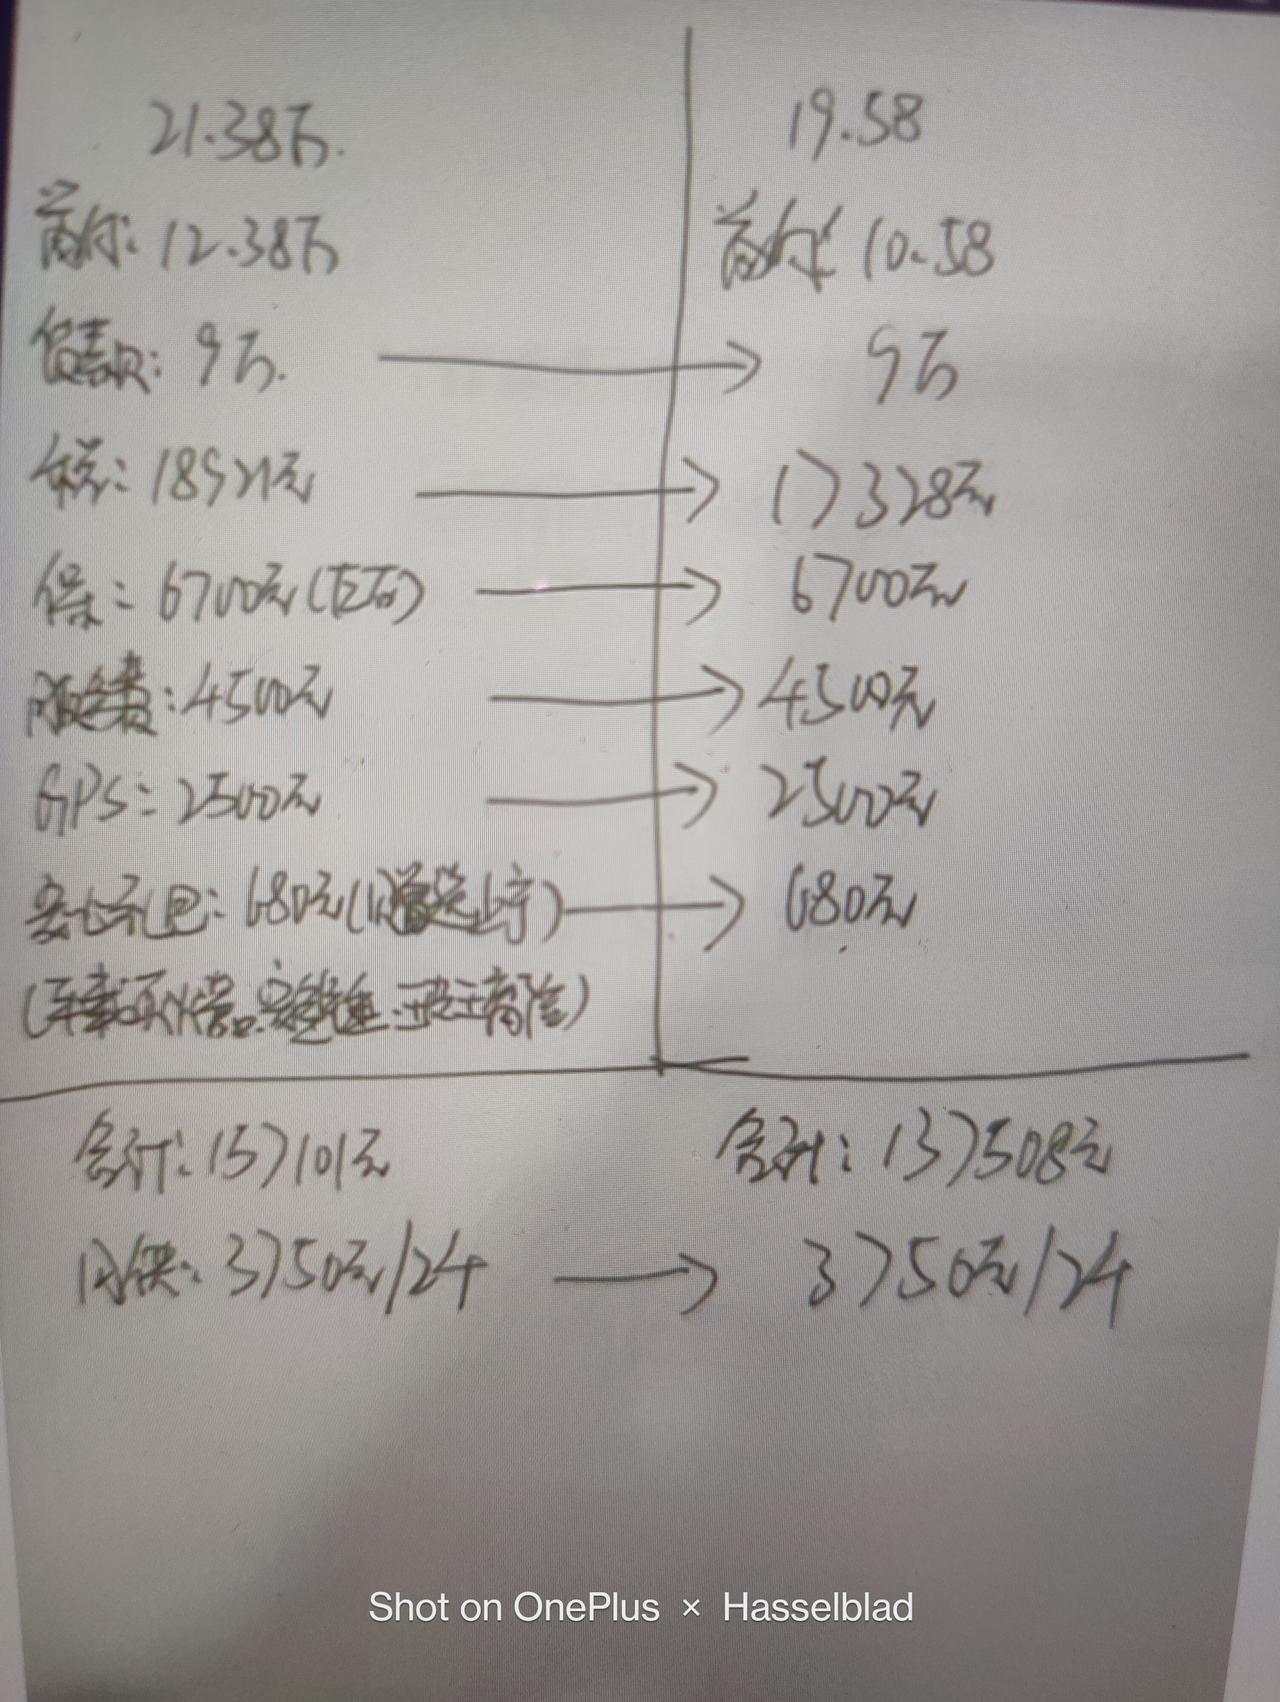 21.38万.
19.58
首付: 12.38万
首付: 10.58
贷款: 9万.
9万
税: 18921元
17328元
保: 6700元(百万)
6700元
4500元
4500元
GPS: 2500元
2500元
礼包: 680元
680元
合计: 157101元
合计: 137508元
月供: 3750元/24
3750元/24
Shot on OnePlus × Hasselblad